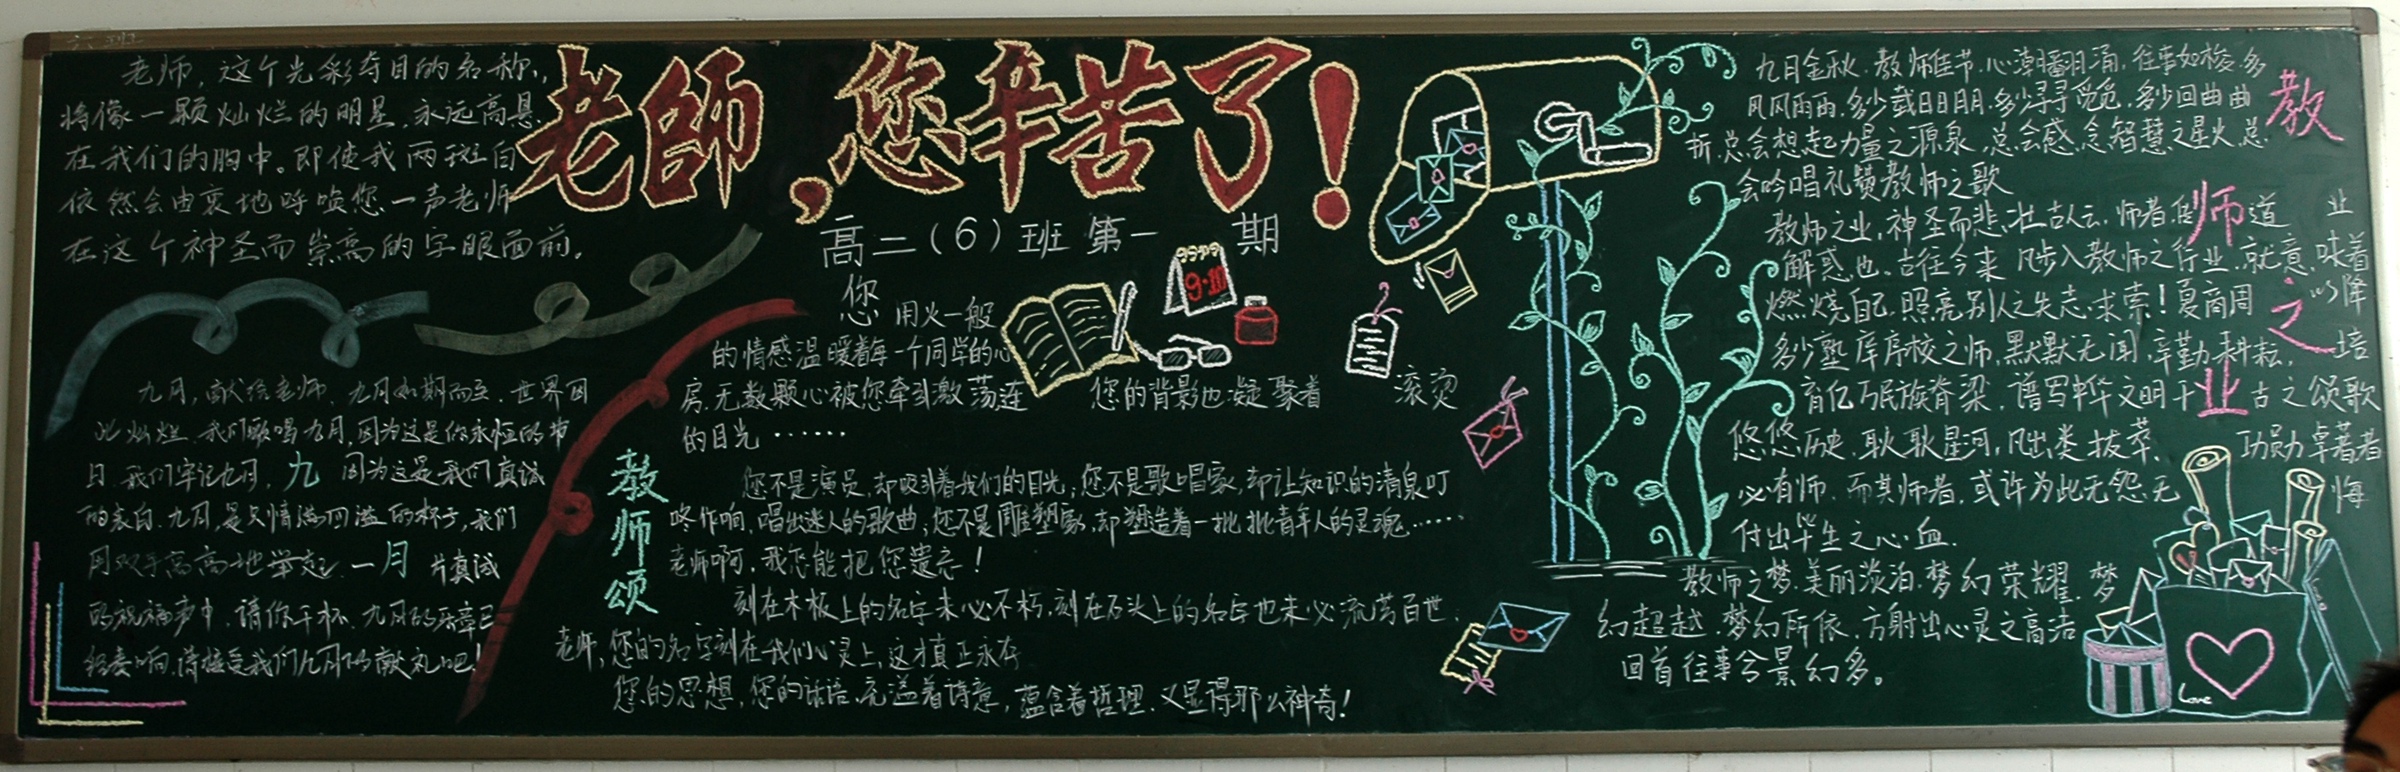 六班
老師，您辛苦了！
高二（6）班 第一 期
老师，这个光彩夺目的名称，
将像一颗灿烂的明星，永远高悬
在我们的胸中。即使我两斑白
依然会由衷地呼唤您一声老师
在这个神圣而崇高的字眼面前。
九月
九月，献给老师，九月如期而至，世界因
此灿烂，我们歌唱九月，因为这是你永恒的节
日，我们牢记九月，因为这是我们真诚
的表白，九月，是只情满四溢的杯子，我们
用双手高高地举起，一片真诚
的祝福声中，请你干杯，九月的乐章已
经奏响，请接受我们九月的献礼吧！
教师颂
您用火一般
的情感温暖着每一个同学的心
房，无数颗心被您牵引激荡，连您的背影也凝聚着滚烫
的目光……
9·10
您不是演员，却吸引着我们的目光；您不是歌唱家，却让知识的清泉叮
咚作响，唱出迷人的歌曲，您不是雕塑家，却塑造着一批批青年人的灵魂……
老师啊，我怎能把您遗忘！
刻在木板上的名字未必不朽，刻在石头上的名字也未必流芳百世，
老师，您的名字刻在我们心灵上，这才真正永存
您的思想，您的话语，充溢着诗意，蕴含着哲理，又显得那么神奇！
教师之业
九月金秋，教师佳节，心潮翻涌，往事如梭，多
风风雨雨，多少载日日月月，多少寻寻觅觅，多少回曲曲
折，总会想起力量之源泉，总会感念智慧之星火，总
会吟唱礼赞教师之歌
教师之业，神圣而悲壮，古人云，师者 道 业
解惑也，古往今来，凡步入教师之行业，就意味着
燃烧自己，照亮别人之矢志求索！夏商周以降
多少塾庠序校之师，默默无闻，辛勤耕耘，培
育亿万民族脊梁，谱写中华文明千古之颂歌
悠悠历史，耿耿星河，凡出类拔萃，功勋卓著者
必有师，而其师者，或许为此无怨无悔
付出毕生之心血．
教师之梦，美丽淡泊，梦幻荣耀，梦
幻超越，梦幻所依，方射出心灵之高洁
回首往事兮景幻多。
Love